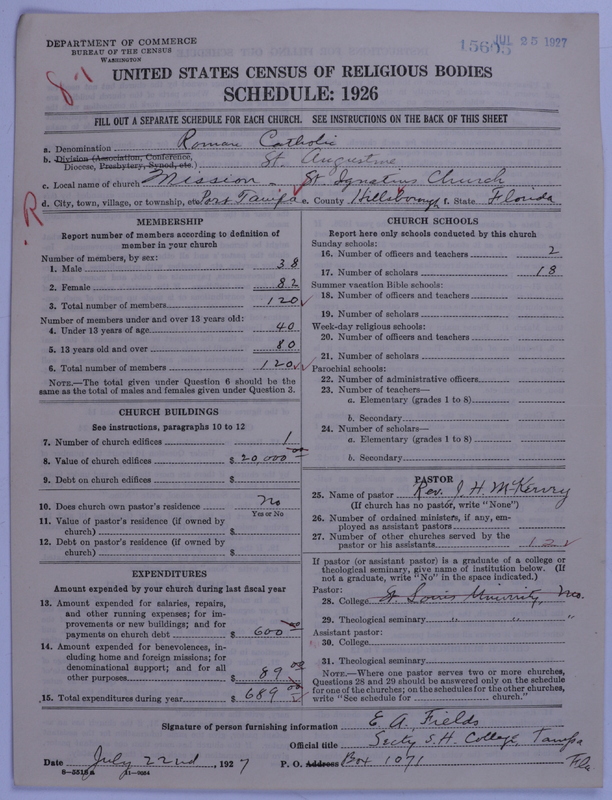 DEPARTMENT OF COMMERCE
BUREAU OF THE CENSUS
WASHINGTON
15605 JUL 25 1927
8-1
UNITED STATES CENSUS OF RELIGIOUS BODIES
SCHEDULE: 1926
FILL OUT A SEPARATE SCHEDULE FOR EACH CHURCH. SEE INSTRUCTIONS ON THE BACK OF THIS SHEET
a. Denomination Roman Catholic
b. Division (Association, Conference, Diocese, Presbytery, Synod, etc.) St. Augustine
c. Local name of church Mission - St. Ignatius Church
d. City, town, village, or township, etc. Port Tampa e. County Hillsborough f. State Florida
R
MEMBERSHIP
Report number of members according to definition of
member in your church
Number of members, by sex:
1. Male 38
2. Female 82
3. Total number of members 120
Number of members under and over 13 years old:
4. Under 13 years of age 40
5. 13 years old and over 80
6. Total number of members 120
NOTE.—The total given under Question 6 should be
same as the total of males and females given under Question 3.
CHURCH BUILDINGS
See instructions, paragraphs 10 to 12
7. Number of church edifices 1
8. Value of church edifices $ 20,000 00
9. Debt on church edifices $
10. Does church own pastor's residence No
Yes or No
11. Value of pastor's residence (if owned by
church) $
12. Debt on pastor's residence (if owned by
church) $
EXPENDITURES
Amount expended by your church during last fiscal year
13. Amount expended for salaries, repairs,
and other running expenses; for im-
provements or new buildings; and for
payments on church debt $ 600 00
14. Amount expended for benevolences, in-
cluding home and foreign missions; for
denominational support; and for all
other purposes $ 89 00
15. Total expenditures during year $ 689 00
CHURCH SCHOOLS
Report here only schools conducted by this church
Sunday schools:
16. Number of officers and teachers 2
17. Number of scholars 18
Summer vacation Bible schools:
18. Number of officers and teachers
19. Number of scholars
Week-day religious schools:
20. Number of officers and teachers
21. Number of scholars
Parochial schools:
22. Number of administrative officers
23. Number of teachers—
a. Elementary (grades 1 to 8)
b. Secondary
24. Number of scholars—
a. Elementary (grades 1 to 8)
b. Secondary
PASTOR
25. Name of pastor Rev.
(If church has no pastor, write "None")
26. Number of ordained ministers, if any, em-
ployed as assistant pastors
27. Number of other churches served by the
pastor or his assistants 12
If pastor (or assistant pastor) is a graduate of a college or
theological seminary, give name of institution below. (If
not a graduate, write "No" in the space indicated.)
Pastor:
28. College St. Louis University, Mo.
29. Theological seminary " " "
Assistant pastor:
30. College
31. Theological seminary
NOTE.—Where one pastor serves two or more churches,
Questions 28 and 29 should be answered only on the schedule
for one of the churches; on the schedules for the other churches,
write "See schedule for church."
Signature of person furnishing information E. A. Fields
Official title Secty S. H. College, Tampa
Date July 22nd, 1927 P. O. Address Box 1071 Fla.
8—5518a 11—9054